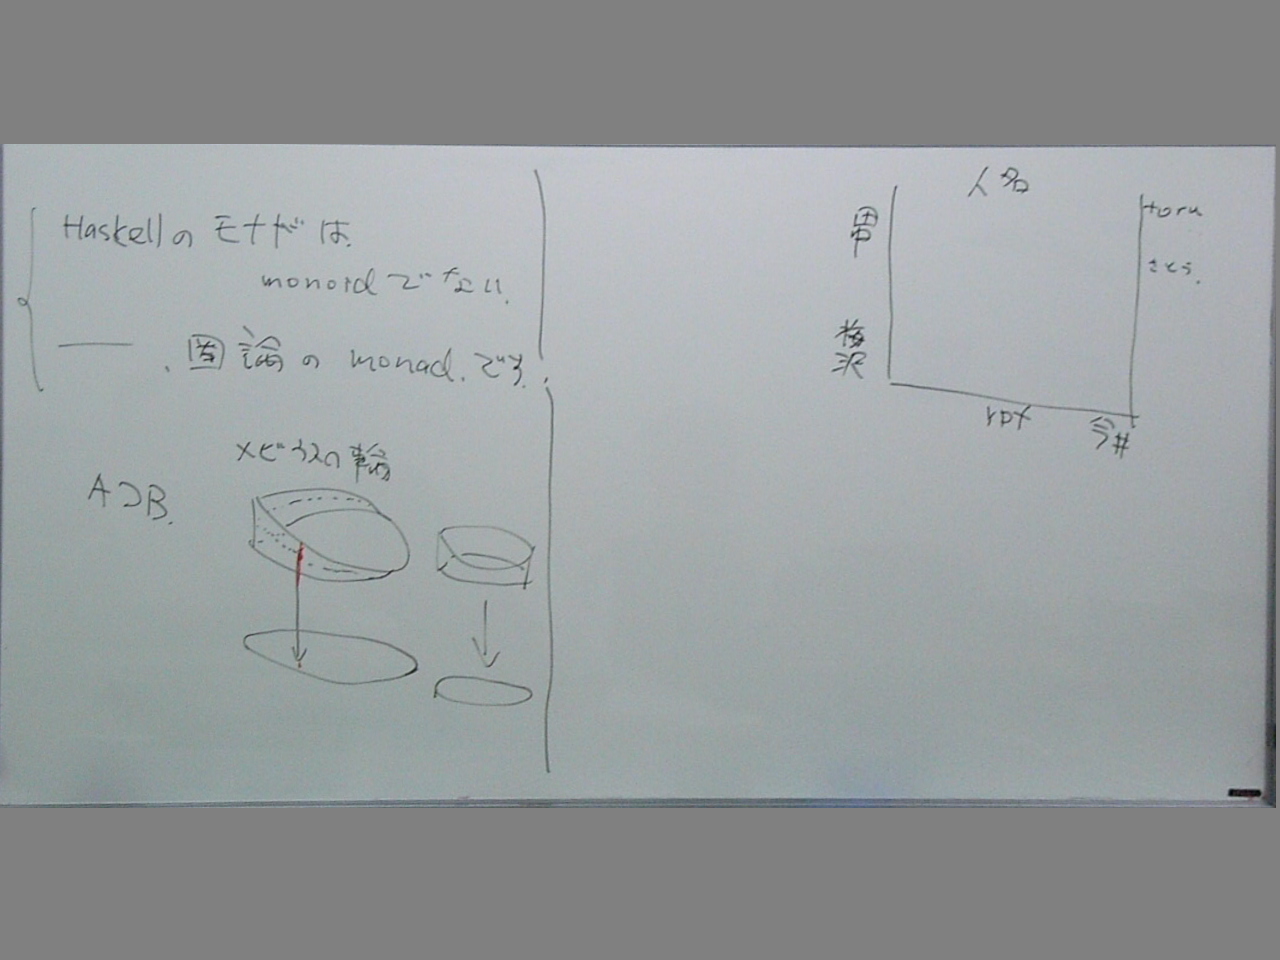 Haskellのモナドは
monoidでない.
——. 圏論のmonad.です.
メビウスの輪
A⊃B.
人名
田中
toru
さとう.
梅沢
今井